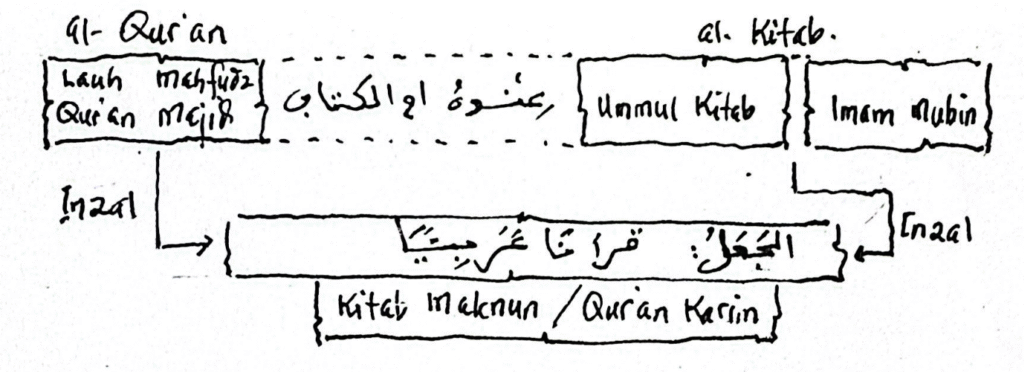 al-Qur'an
al. Kitab.
Lauh Mahfudz
Qur'an Majid
وعندهُ ام الكتاب
Ummul Kitab
Imam Mubin
Inzal
الجَعَلُ: قرانا عَرَبِيًّا
Inzal
Kitab Maknun / Qur'an Karim